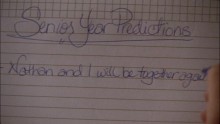 Senior Year Predictions
Nathan and I will be together again